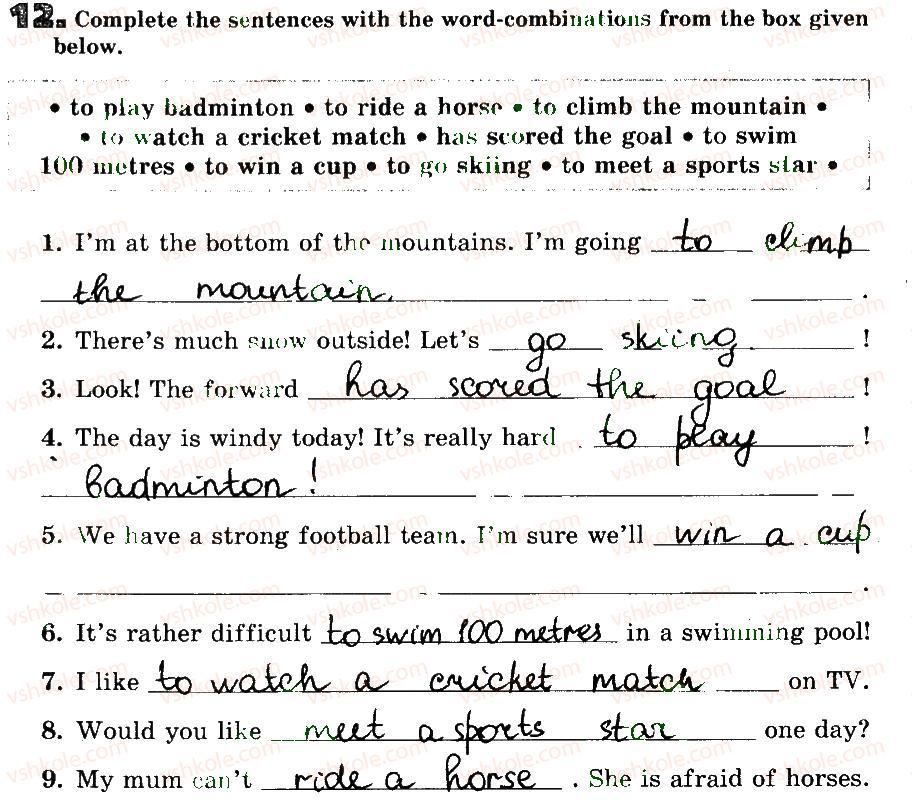 12. Complete the sentences with the word-combinations from the box given
below.
• to play badminton • to ride a horse • to climb the mountain •
• to watch a cricket match • has scored the goal • to swim
100 metres • to win a cup • to go skiing • to meet a sports star •
1. I'm at the bottom of the mountains. I'm going to climb
the mountain. .
2. There's much snow outside! Let's go skiing !
3. Look! The forward has scored the goal !
4. The day is windy today! It's really hard to play !
badminton!
5. We have a strong football team. I'm sure we'll win a cup
.
6. It's rather difficult to swim 100 metres in a swimming pool!
7. I like to watch a cricket match on TV.
8. Would you like meet a sports star one day?
9. My mum can't ride a horse . She is afraid of horses.